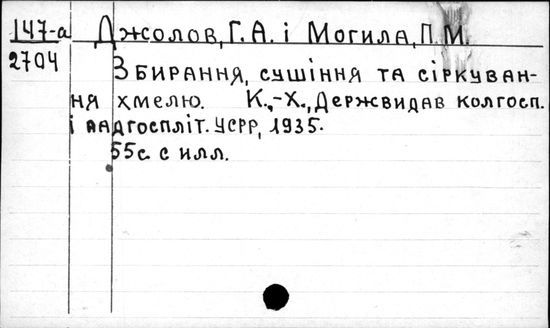 147-а Джолов, Г.А. і Могила, П.М.
2704
Збирання, сушіння та сіркуван-
ня хмелю. К.,-Х., Держвидав колгосп.
і радгоспліт. УСРР, 1935.
55с. с илл.